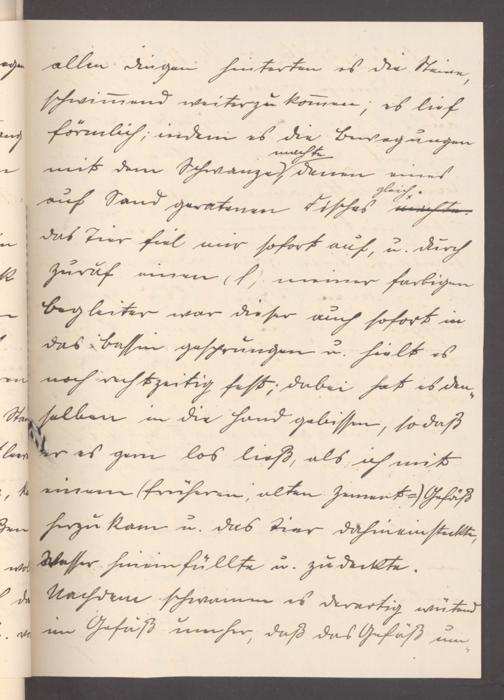 allen dingen hinterten es die Steine,
schwim̄end weiterzukom̄en; es lief
förmlich; indem es die Bewegungen
machte
mit dem Schwanze, denen eines
gleich.
auf Sand geratenen Fisches machte.
das Tier fiel mir sofort auf, u. durch
Zuruf einen (1) meiner farbigen
begleiter war dieser auch sofort in
das bassin gesprungen u. hielt es
noch rechtzeitig fest; dabei hat es den-
selben in die Hand gebissen, sodaß
er es gern los ließ, als ich mit
einem (früheren, alten Zement-) Gefäß
herzukam u. das Tier dahineinsteckte,
Wasser hineinfüllte u. zudeckte.
Nachdem schwamm es derartig wütend
im Gefäß umher, daß das Gefäß um-